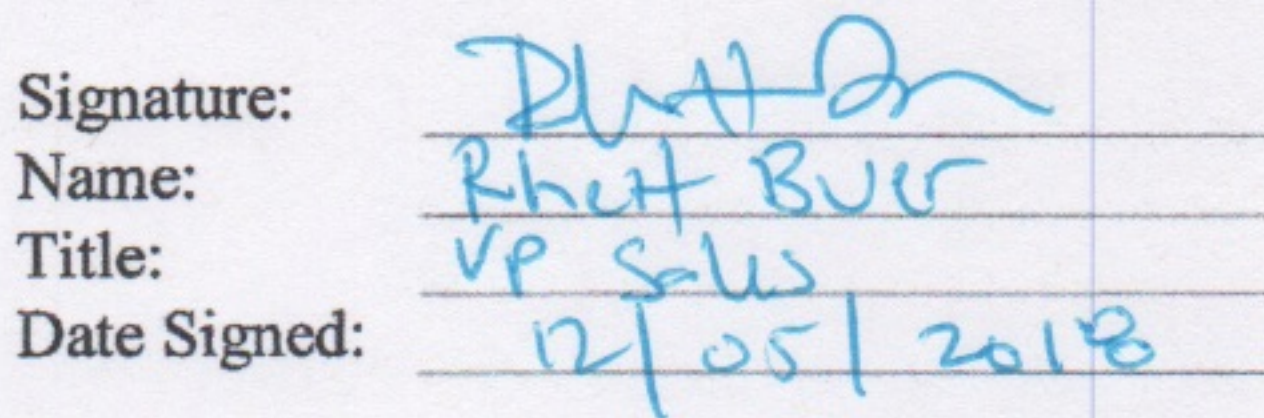 Signature:
Name: Rhett Buer
Title: VP Sales
Date Signed: 12/05/2018